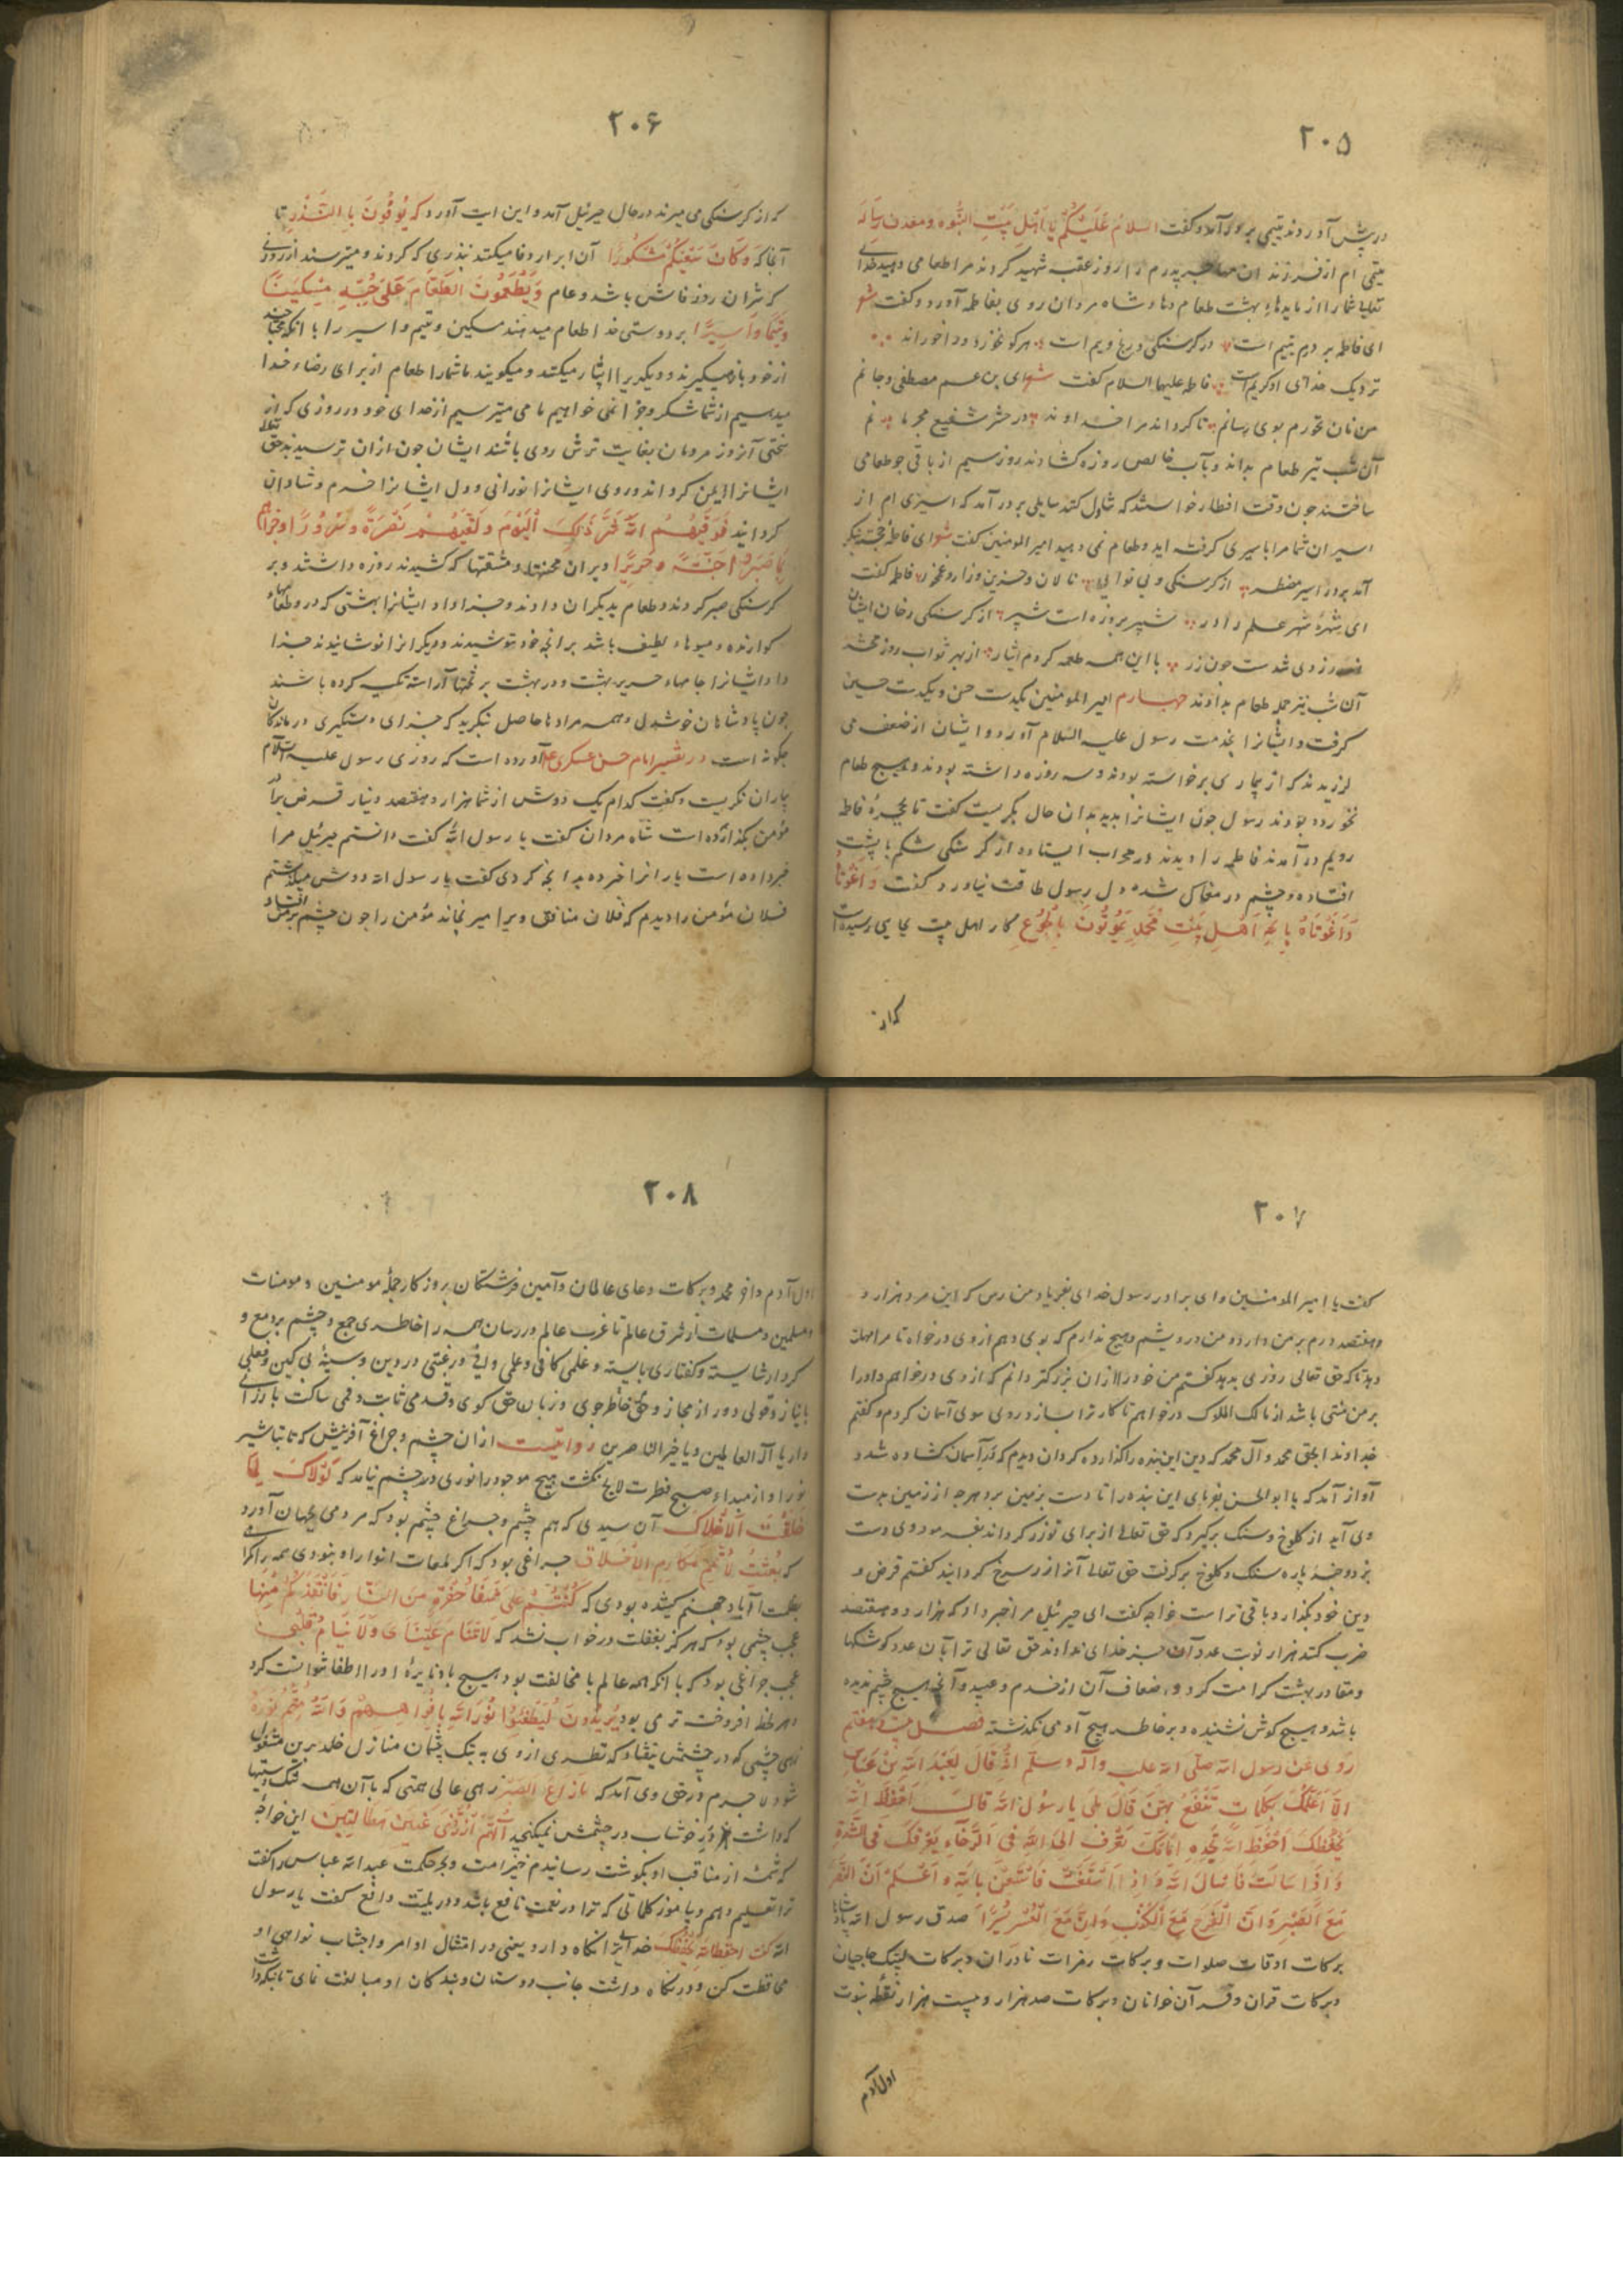 ۲۰۵
در پیش آوردند یتیمی بر در آمد و گفت السلام علیکم یا اهل بیت النبوه و معدن رساله
یتیمی ام از فرزندان مهاجر پدرم را روز عقبه شهید کردند مرا طعامی دهید خدای
تعالی شما را از مایدهاء بهشت طعام دهاد شاه مردان روی بفاطمه آورد و گفت شعر
ای فاطمه بر درم یتیم است در کرسنکی و رنج و بیم است هرکو نخورد و داخوراند
نزدیک خدای او کریم است فاطمه علیها السلام گفت شعر ای بن عم مصطفی و جانم
من نان نخورم بوی رسانم تا کرداند مرا خداوند در حشر شفیع مجرمانم
آن شب نیز طعام بداند و بآب خالص روزه کشادند روز سیم از باقی جو طعامی
ساختند چون وقت افطار خواستند که تناول کنند سایلی بر در آمد که اسیری ام از
اسیران شما مرا باسیری گرفته اید و طعام نمی دهید امیر المومنین گفت شعر ای فاطمه
آمد بر در اسیر مضطر از کرسنکی و بی نوایی نالان و حزین و زار و غمخور فاطمه گفت
ای شهره شهر علم را در شبیر بروزه است شبر از کرسنکی رخان ایشان
زردی شدست چون زر با این همه طعمه کردم ایثار از بهر ثواب روز محشر
آن شب نیز جمله طعام بدادند چهارم امیر المومنین بیکدست حسن و بیکدست حسین
گرفت و ایشانرا بخدمت رسول علیه السلام آورد و ایشان از ضعف می
لرزیدند که از بیماری برخواسته بودند و سه روزه داشته بودند و هیچ طعام
نخورده بودند رسول چون ایشانرا بدید بدان حال بگریست گفت تا بحجره فاطمه
رویم در آمدند فاطمه را دیدند در محراب ایستاده از گرسنگی شکم با پشت
افتاده و چشم در مغاکی شده دل رسول طاقت نیاورد گفت واغوثاه
واغوثاه بالله اهل بیت محمد یموتون بالجوع کار اهل بیت بجایی رسیده است
که از
۲۰۶
که از کرسنکی می میرند در حال جبرئیل آمد و این ایت آورد که یُوفُونَ بِالنَّذْرِ تا
آنجا که وَكَانَ سَعْيُكُمْ مَشْكُورًا آن ابرار وفا میکنند بنذری که کردند و میترسند از روزی
که شر آن روز فاش باشد و عام وَيُطْعِمُونَ الطَّعَامَ عَلَى حُبِّهِ مِسْكِينًا
وَيَتِيمًا وَأَسِيرًا بر دوستی خدا طعام میدهند مسکین و یتیم و اسیر را با آنکه محتاجند
از خود باز میگیرند و دیگریرا ایثار میکنند و میکویند ما شما را طعام از برای رضاء خدا
میدهیم از شما شکر و جزا نمی خواهیم ما می میترسیم از خدای خود در روزی که از
سختی آنروز مردمان بغایت ترش روی باشند ایشان چون ازان ترسیدند حق تعالی
ایشانرا ایمن کرداند و روی ایشانرا نورانی و دل ایشانرا خرم و شادان
کردانید فَوَقَاهُمُ اللَّهُ شَرَّ ذَلِكَ الْيَوْمِ وَلَقَّاهُمْ نَضْرَةً وَسُرُورًا وَجَزَاهُمْ
بِمَا صَبَرُوا جَنَّةً وَحَرِيرًا و بران محنتها و مشقتها که کشیدند روزه داشتند و بر
کرسنکی صبر کردند و طعام بدیکران دادند و خدا داد ایشانرا بهشتی که در و طعامهاء
کوارنده و میوهاء لطیف باشد بر آنچ خود ننوشیدند و دیگرانرا نوشانیدند خدا
داد ایشانرا جامهاء حریر بهشت و در بهشت بر تختها آراسته تکیه کرده باشند
چون پادشاهان خوشدل و همه مرادها حاصل بنکرید که جزای دستگیری درماندکان
چکونه است در تفسیر امام حسن عسکری علیه آورده است که روزی رسول علیه السلام
بیاران نکریست و گفت کدام یک دوش از شما هزار و هفتصد دینار قرض برادر
مؤمن بگذارده است شاه مردان گفت یا رسول الله گفت دانستم جبرئیل مرا
خبر داده است یارانرا خبر ده بدانچه کردی گفت یا رسول الله دوش میگذشتم
فلان مؤمن را دیدم که فلان منافق ویرا میرنجاند مؤمن را چون چشم بر من افتاد
۲۰۷
گفت یا امیر المومنین و ای برادر رسول خدای بفریاد من رس که این مرد هزار و
و هفتصد درم بر من دارد و من درویشم و هیچ ندارم که بوی دهم از وی درخواه تا مرا مهلت
دهد تا که حق تعالی روزی بدهد گفتم من خود را ازان بزرکتر دانم که از وی درخواهم و او را
بر من منتی باشد از مالک الملوک درخواهم تا کار ترا بسازد روی سوی آسمان کردم و گفتم
خداوندا بحق محمد و آل محمد که دین این بنده را گذارده کردان دیدم که در آسمان کشاده شد و
آواز آمد که یا ابو الحسن بفرمای این بنده را تا دست بزمین برد هرچ از زمین بدست
وی آید از کلوخ و سنک برگیرد که حق تعالی از برای تو زر کرداند بفرمود وی دست
بزد و چند پاره سنک و کلوخ بر گرفت حق تعالی آنرا زر سرخ کردانید گفتم قرض و
دین خود بگذار و باقی تراست خواجه گفت ای جبرئیل مرا خبر داد که هزار و هفتصد
ضرب کنند هزار نوبت عدد آن جز خدای نداند حق تعالی ترا بآن عدد کوشکها
و مقام در بهشت کرامت کرد و اضعاف آن از خدم و عبید و آنچ هیچ چشم ندیده
باشد و هیچ کوش نشنیده و بر خاطر هیچ آدمی نگذشته فصل بیست و هفتم
رَوی عَن رسول الله صلّی الله علیه وآله وسلّم اَنَّهُ قالَ لِعَبْدِ اللهِ بنِ عَبّاسٍ
اَلا اُعَلِّمُكَ بِكَلِماتٍ تَنْتَفِعُ بِهِنَّ قالَ بَلی یا رسُولَ اللهِ قالَ اِحْفَظِ اللهَ
یَحْفَظْكَ اِحْفَظِ اللهَ تَجِدْهُ اَمامَكَ تَعَرَّفْ اِلَی اللهِ فِی الرَّخاءِ یَعْرِفْكَ فِی الشِّدَّةِ
وَاِذا سَاَلْتَ فَاسْاَلِ اللهَ وَاِذا اسْتَعَنْتَ فَاسْتَعِنْ بِاللهِ وَاعْلَمْ اَنَّ النَّصْرَ
مَعَ الصَّبْرِ وَاَنَّ الْفَرَجَ مَعَ الْكَرْبِ وَاِنَّ مَعَ الْعُسْرِ یُسْرًا صدق رسول الله
برکات اوقات صلوات و برکات زمرات نادران و برکات لبیک حاجیان
و برکات قران و قرآن خوانان و برکات صد هزار و بیست هزار نقطه نبوت
اول آدم
۲۰۸
اول آدم و اخر محمد و برکات دعای عالمان و آمین فرشتکان بروزکار جمله مومنین و مومنات
و مسلمین و مسلمات از شرق عالم تا غرب عالم در رسان همه را خاطری جمع و چشم پر دمع و
کردار شایسته و کفتاری بایسته و علمی کافی و عملی وافی و رغبتی در دین و سینهٔ بی کین و فعلی
با نیاز و قولی دور از مجاز و خاطر جوی و زبان حق کوی و قدمی ثابت و فمی ساکت بارزانی
دار یا اله العالمین و یا خیر الناصرین روایتست ازان چشم و چراغ آفرینش که تا تباشیر
نور او از مبداء صبح فطرت لایح نکشت هیچ موجود را نوری در چشم نیامد که لَوْلاكَ لَما
خَلَقْتُ الْاَفْلاكَ آن سیدی که هم چشم و چراغ چشم بود که مردمی بجهان آورد
که بُعِثْتُ لِاُتَمِّمَ مَكارِمَ الْاَخْلاقِ چراغی بود که اکر لمعات انوار او نبودی همه را
بظلمت آباد جهنم کشیده بودی که كُنْتُمْ عَلَى شَفَا حُفْرَةٍ مِنَ النَّارِ فَأَنْقَذَكُمْ مِنْهَا
عجب چشمی بود که هرکز بغفلت در خواب نشد که لا تَنامُ عَیْنایَ وَلا یَنامُ قَلْبی
عجب چراغی بود که با آنکه همه عالم با مخالفت بود هیچ باد نایرهٔ او را اطفا نتوانست کرد
و هر لحظه افروخته تر می بود یُرِیدُونَ لِیُطْفِئُوا نُورَ اللَّهِ بِأَفْوَاهِهِمْ وَاللَّهُ مُتِمُّ نُورِهِ
زهی چشمی که در چشمش نیفتاد که نظری از وی به نیک چشمان منازل خلد برین مشغول
شود لا جرم در حق وی آمد که مَا زَاغَ الْبَصَرُ زهی عالی همتی که با آن همه
که داشت در خوشاب در چشمش نمیکنجید اللّهمّ ارْزُقْنی عَیْنَیْنِ هَطّالَتَیْنِ این خواجه
که شمهٔ از مناقب او بکوشت رسانیدم خیر امت و بحر حکمت عبد الله عباس را گفت
ترا تعلیم دهم و بیاموزم کلماتی که ترا در نعمت نافع باشد و در بلیت دافع گفت یا رسول
الله گفت احفظ الله یحفظک خدای را نگاه دار یعنی در امتثال اوامر و اجتناب نواهی او
محافظت کن و در نگاه داشت جانب دوستان و بندکان او مبالغت نمای تا